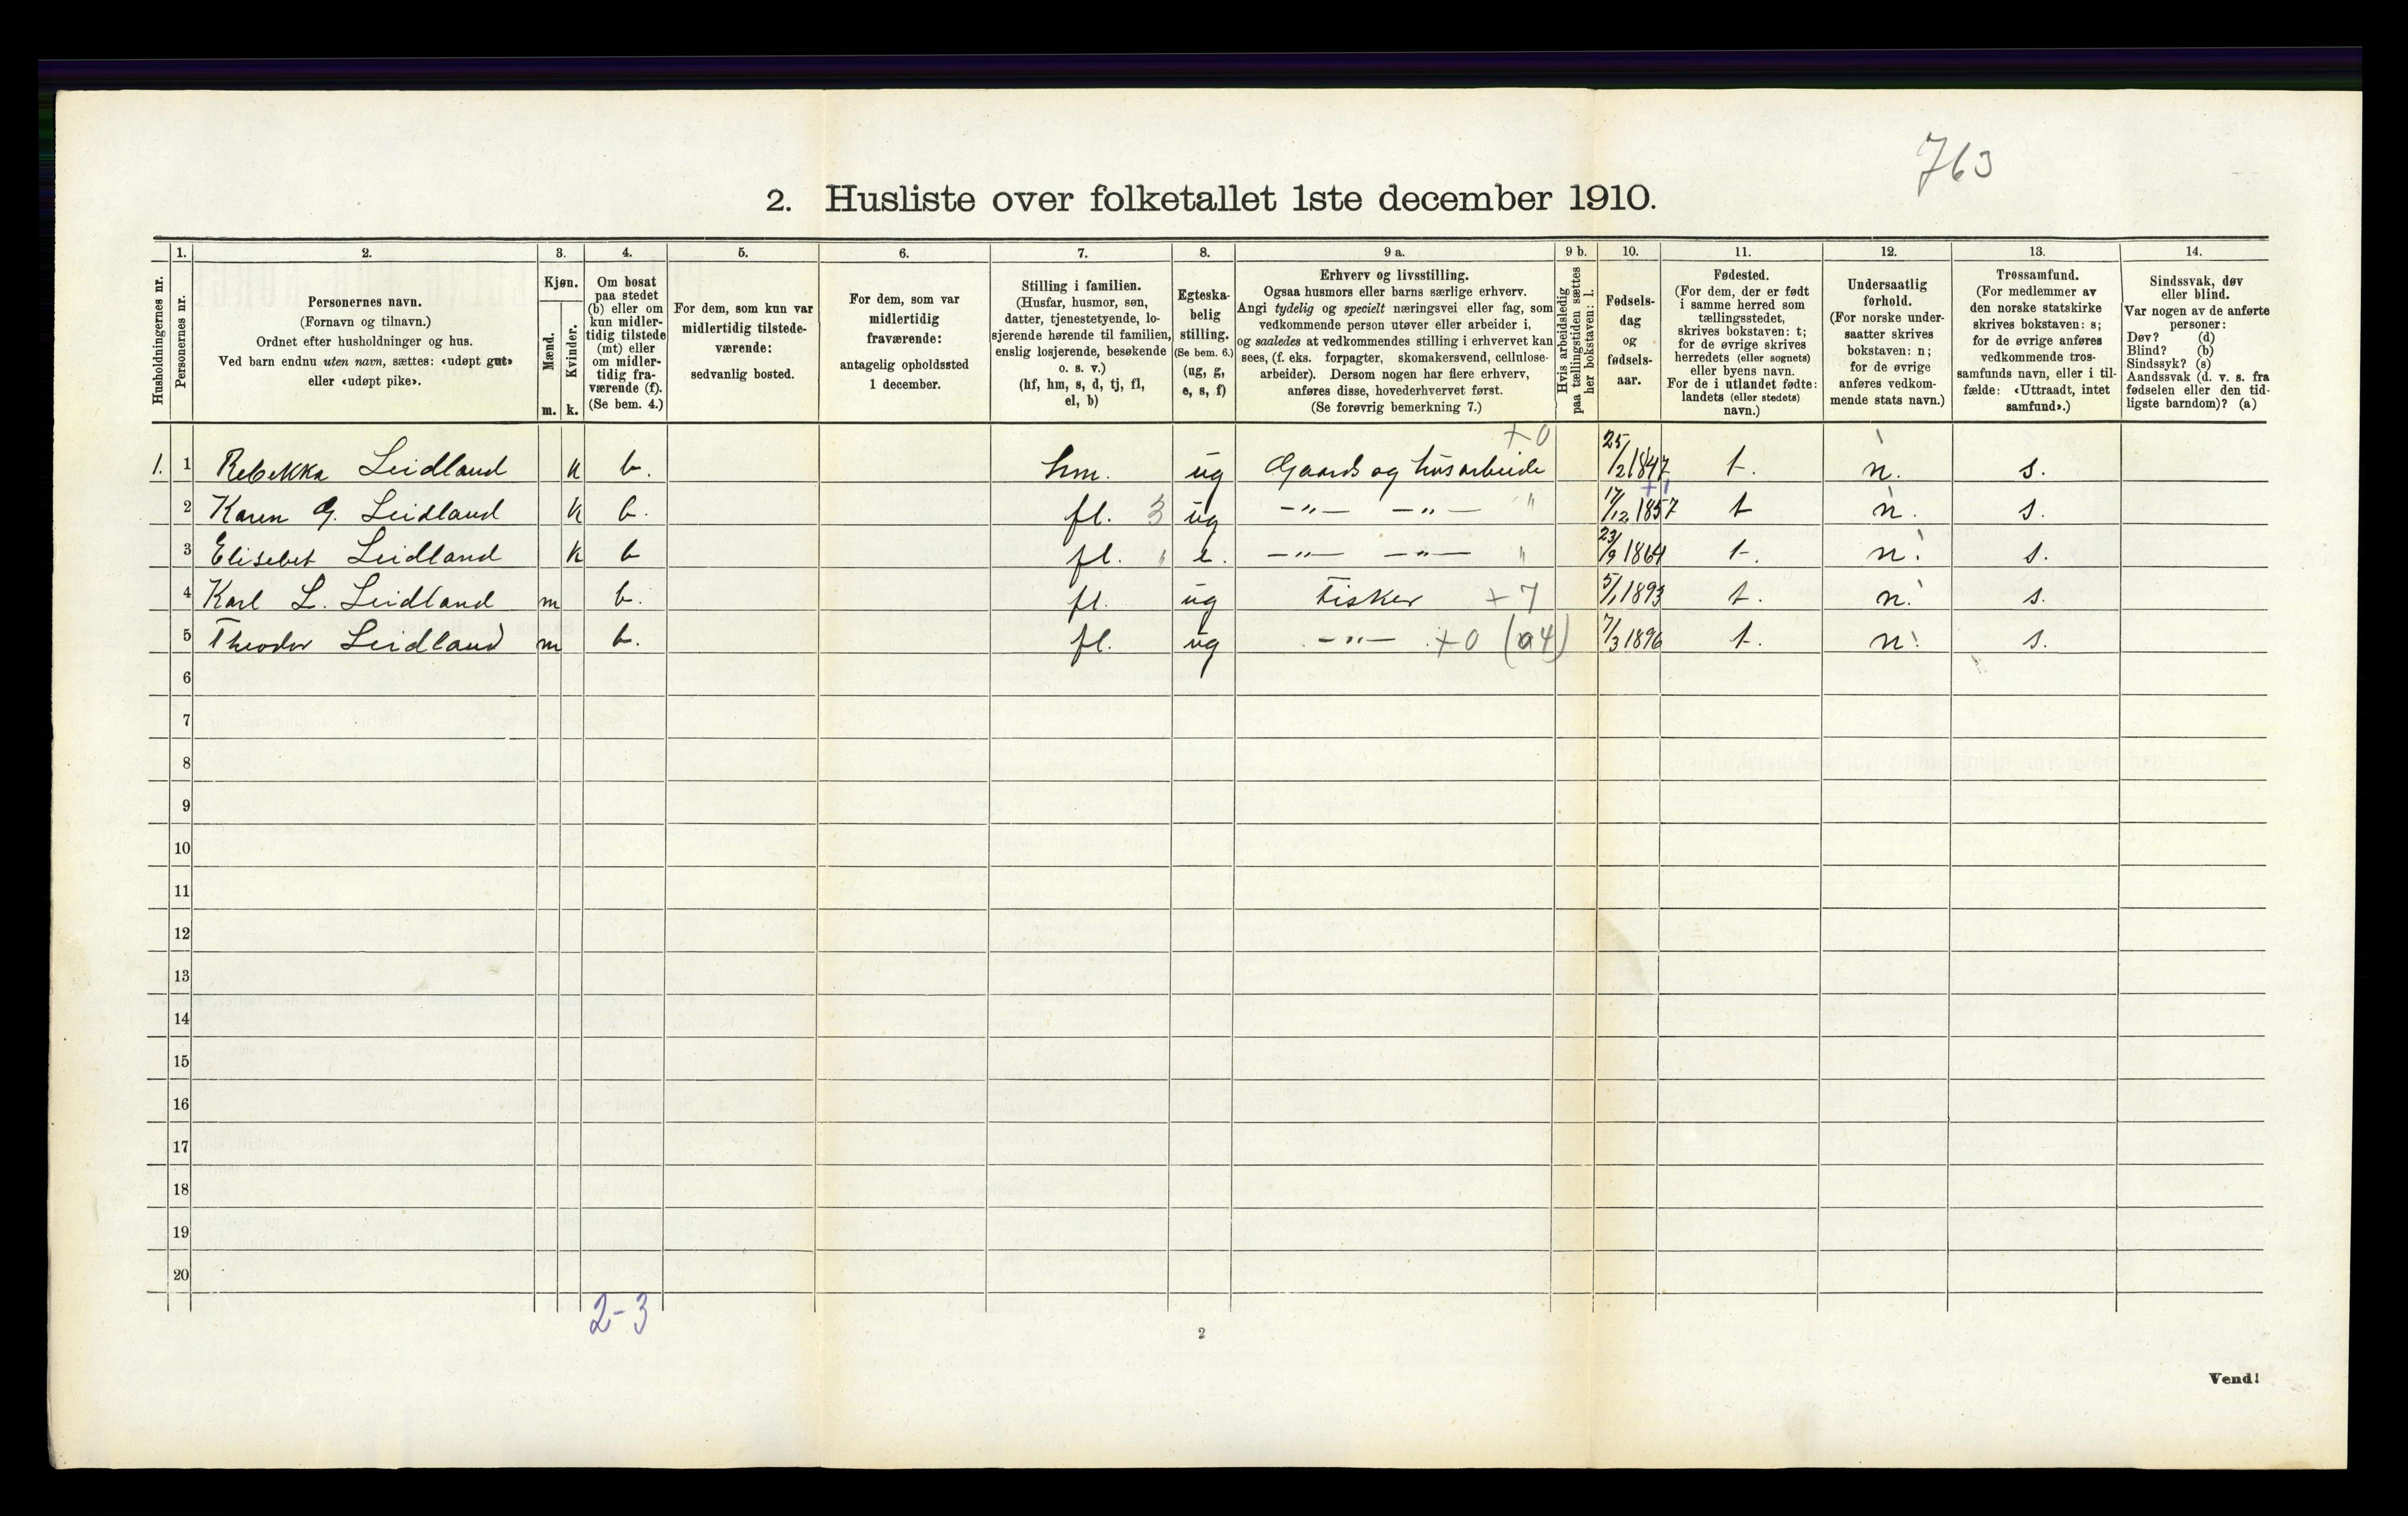 763
2. Husliste over folketallet 1ste december 1910.
Husholdningernes nr.
1.
Personernes nr.
2.
Personernes navn.
(Fornavn og tilnavn.)
Ordnet efter husholdninger og hus.
Ved barn endnu uten navn, sættes: «udøpt gut»
eller «udøpt pike».
3.
Kjøn.
Mænd.
m.
Kvinder.
k.
4.
Om bosat
paa stedet
(b) eller om
kun midler-
tidig tilstede
(mt) eller
om midler-
tidig fra-
værende (f).
(Se bem. 4.)
5.
For dem, som kun var
midlertidig tilstede-
værende:
sedvanlig bosted.
6.
For dem, som var
midlertidig
fraværende:
antagelig opholdssted
1 december.
7.
Stilling i familien.
(Husfar, husmor, søn,
datter, tjenestetyende, lo-
sjerende hørende til familien,
enslig losjerende, besøkende
o. s. v.)
(hf, hm, s, d, tj, fl,
el, b)
8.
Egteska-
belig
stilling.
(Se bem. 6.)
(ug, g,
e, s, f)
9 a.
Erhverv og livsstilling.
Ogsaa husmors eller barns særlige erhverv.
Angi tydelig og specielt næringsvei eller fag, som
vedkommende person utøver eller arbeider i,
og saaledes at vedkommendes stilling i erhvervet kan
sees, (f. eks. forpagter, skomakersvend, cellulose-
arbeider). Dersom nogen har flere erhverv,
anføres disse, hovederhvervet først.
(Se forøvrig bemerkning 7.)
9 b.
Hvis arbeidsledig
paa tællingstiden sættes
her bokstaven: l.
10.
Fødsels-
dag
og
fødsels-
aar.
11.
Fødested.
(For dem, der er født
i samme herred som
tællingsstedet,
skrives bokstaven: t;
for de øvrige skrives
herredets (eller sognets)
eller byens navn.
For de i utlandet fødte:
landets (eller stedets)
navn.)
12.
Undersaatlig
forhold.
(For norske under-
saatter skrives
bokstaven: n;
for de øvrige
anføres vedkom-
mende stats navn.)
13.
Trossamfund.
(For medlemmer av
den norske statskirke
skrives bokstaven: s;
for de øvrige anføres
vedkommende tros-
samfunds navn, eller i til-
fælde: «Uttraadt, intet
samfund».)
14.
Sindssvak, døv
eller blind.
Var nogen av de anførte
personer:
Døv? (d)
Blind? (b)
Sindssyk? (s)
Aandssvak (d. v. s. fra
fødselen eller den tid-
ligste barndom)? (a)
+0
1. 1 Rebekka Leidland k b. hm. ug Gaards og husarbeide 25/2 1847 t. n. s.
2 Karen G. Leidland k b. fl. 3 ug -"- -"- " 17/12 1857 t n. s.
3 Elisebet Leidland k b fl. " e. -"- -"- " 23/9 1864 t. n. s.
4 Karl L. Leidland m b. fl. ug Fisker +7 5/1 1893 t. n. s.
5 Theodor Leidland m b. fl. ug -"- +0 (a4) 7/3 1896 t. n. s.
6
7
8
9
10
11
12
13
14
15
16
17
18
19
20
2-3
2
Vend!